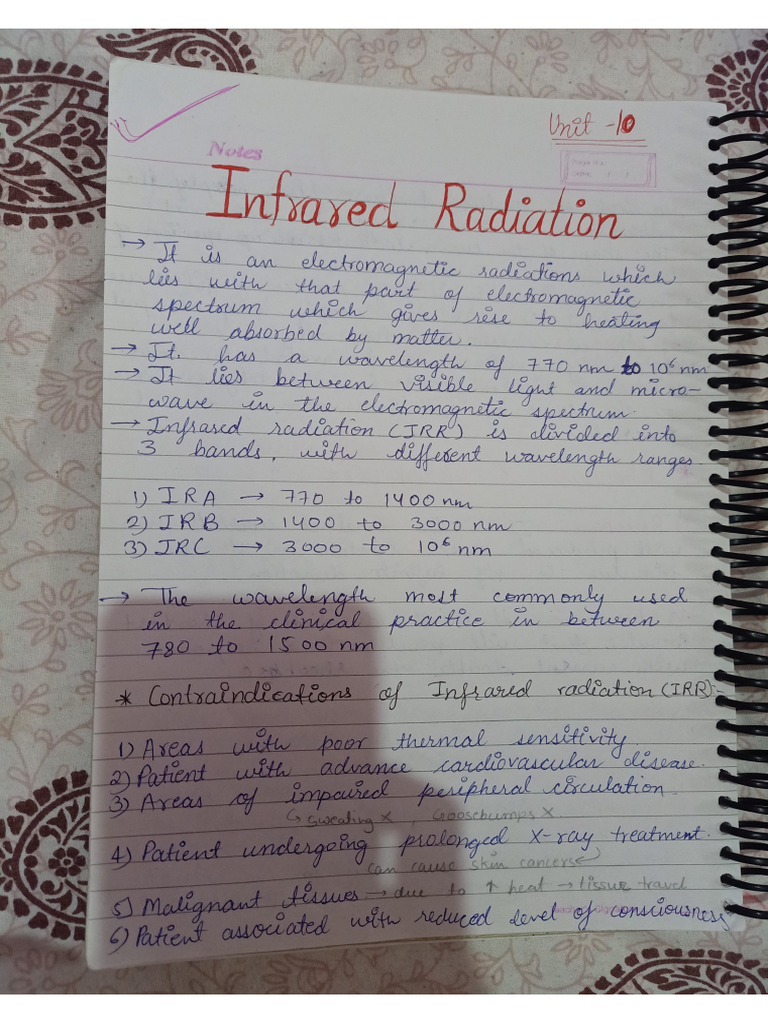 Unit -10
Notes
Infrared Radiation
→ It is an electromagnetic radiations which
lies with that part of electromagnetic
spectrum which gives rise to heating
well absorbed by matter.
→ It. has a wavelength of 770 nm to 10⁶ nm
→ It lies between visible light and micro-
wave in the electromagnetic spectrum.
→ Infrared radiation (IRR) is divided into
3 bands, with different wavelength ranges.
1) IRA → 770 to 1400 nm
2) IRB → 1400 to 3000 nm
3) IRC → 3000 to 10⁶ nm
→ The wavelength most commonly used
in the clinical practice in between
780 to 1500 nm
* Contraindications of Infrared radiation (IRR)-
1) Areas with poor thermal sensitivity
2) Patient with advance cardiovascular disease.
3) Areas of impaired peripheral circulation.
↳ sweating X, Goosebumps X
4) Patient undergoing prolonged X-ray treatment.
can cause skin cancers ↵
5) Malignant tissues → due to ↑ heat → tissue travel
6) Patient associated with reduced level of consciousness